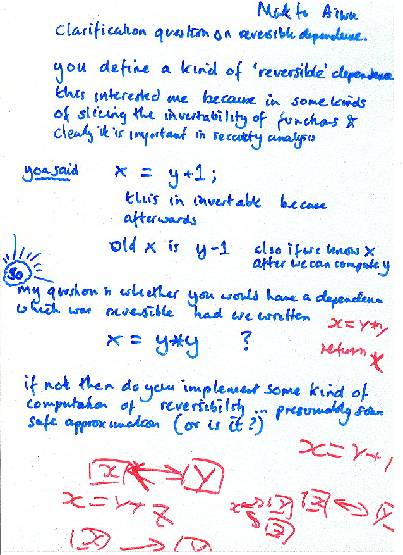 Mark to
Clarification question on reversible dependence.
you define a kind of 'reversible' dependence
this interested me because in some kinds
of slicing the invertability of functions &
clearly it is important in security analysis
you said x = y+1;
this in invertable because
afterwards
old x is y-1 also if we know x
after we can compute y
So
my question is whether you would have a dependence
which was reversible had we written
x = y*y
x = y*y ?
return x
if not then do you implement some kind of
computation of reversibility ... presumably some
safe approximation (or is it?)
x = y+1
x y
x = y+z
x y
z
x y
x y